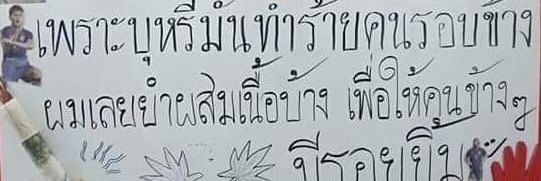 เพราะบุหรี่มันทำร้ายคนรอบข้าง
ผมเลยยำผสมเนื้อบ้าง เพื่อให้คนข้างๆ
มีรอยยิ้ม